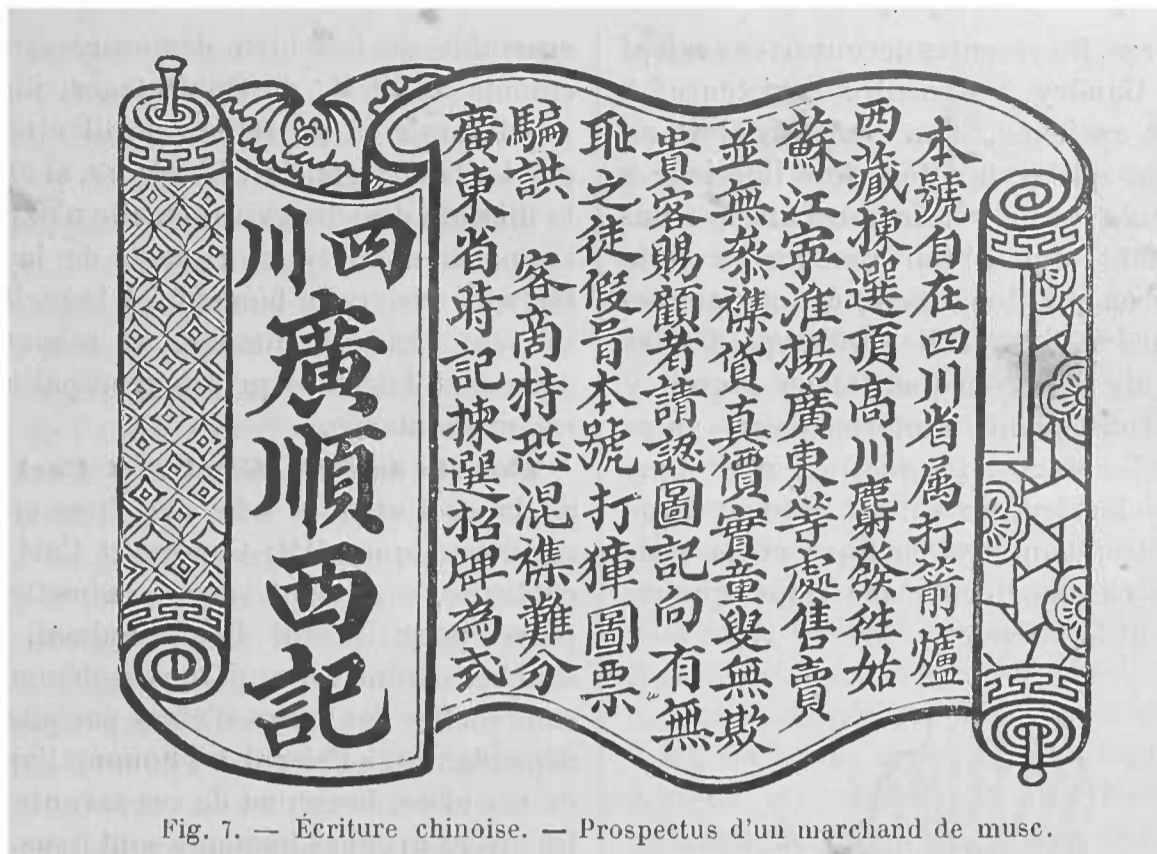 本號自在四川省属打箭爐
西藏揀選頂高川麝發徃姑
蘇江寧淮揚廣東等處售賣
並無叅襍貨真價實童叟無欺
貴客賜顧者請認圖記向有無
耻之徒假冒本號打獐圖票
騙誆客商特恐混襍難分
廣東省時記揀選招牌為式
四川
廣順西記
Fig. 7. — Écriture chinoise. — Prospectus d'un marchand de musc.